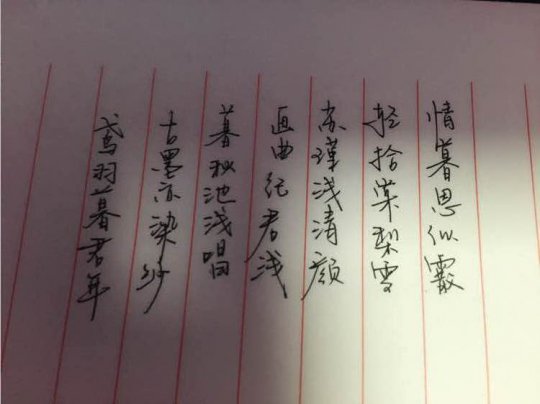 情暮思似霰
轻拾棠梨雪
苏瑾浅清颜
画曲纪君浅
暮秋池浅唱
古墨亦染纱
鸢羽暮君年